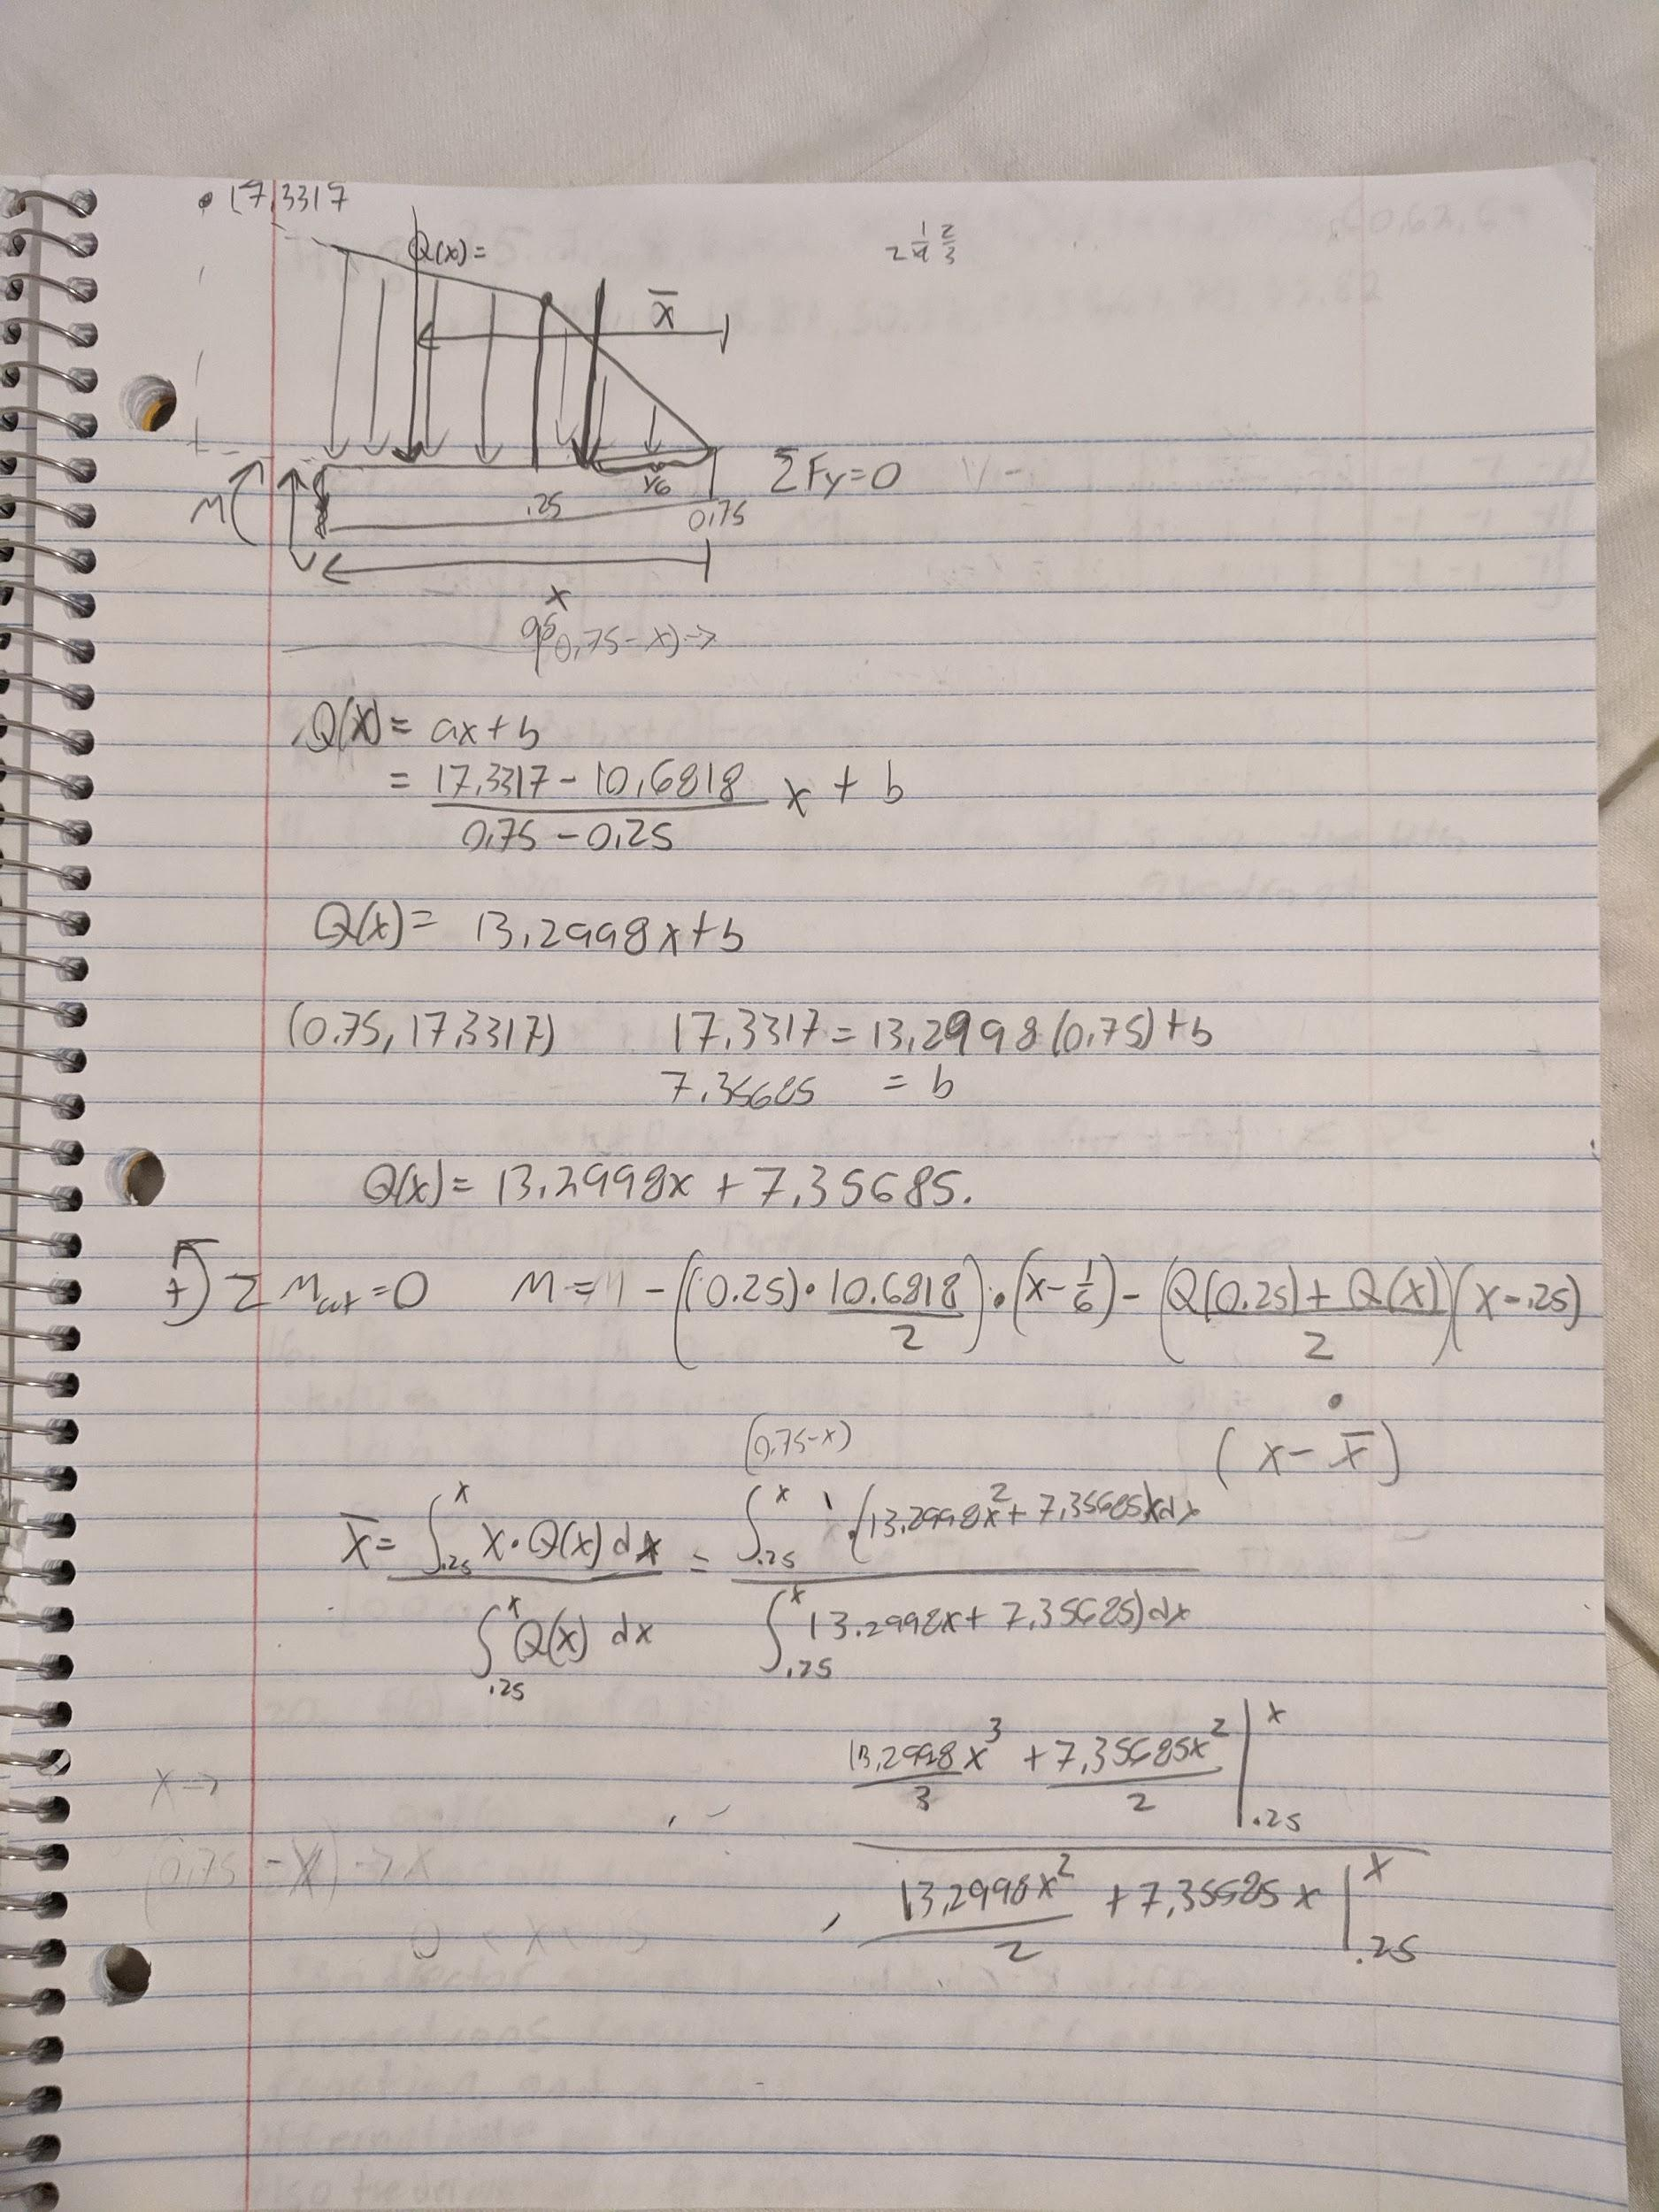 17.3317
Q(x)=
2 1/4 2/3
x̄
M
V
1/6
.25
0.75
ΣFy=0
V -
x
(0.75-x)→
Q(x) = ax+b
= (17.3317 - 10.6818)/(0.75 - 0.25) x + b
Q(x) = 13.2998x+b
(0.75, 17.3317) 17.3317 = 13.2998(0.75)+b
7.35685 = b
Q(x) = 13.2998x + 7.35685.
+) Σ Mcut=0 M = - ((0.25)·10.6818/2)·(x-1/6) - ((Q(0.25) + Q(x))/2)(x-.25)
·
(x - x̄)
(0.75-x)
x̄ = ∫.25^x x·Q(x) dx / ∫.25^x Q(x) dx = ∫.25^x (13.2998x² + 7.35685)x dx / ∫.25^x 13.2998x + 7.35685) dx
13.2998x³/3 + 7.35685x²/2 |.25^x
x→
(0.75 - x) → x
13.2998x²/2 + 7.35685x |.25^x